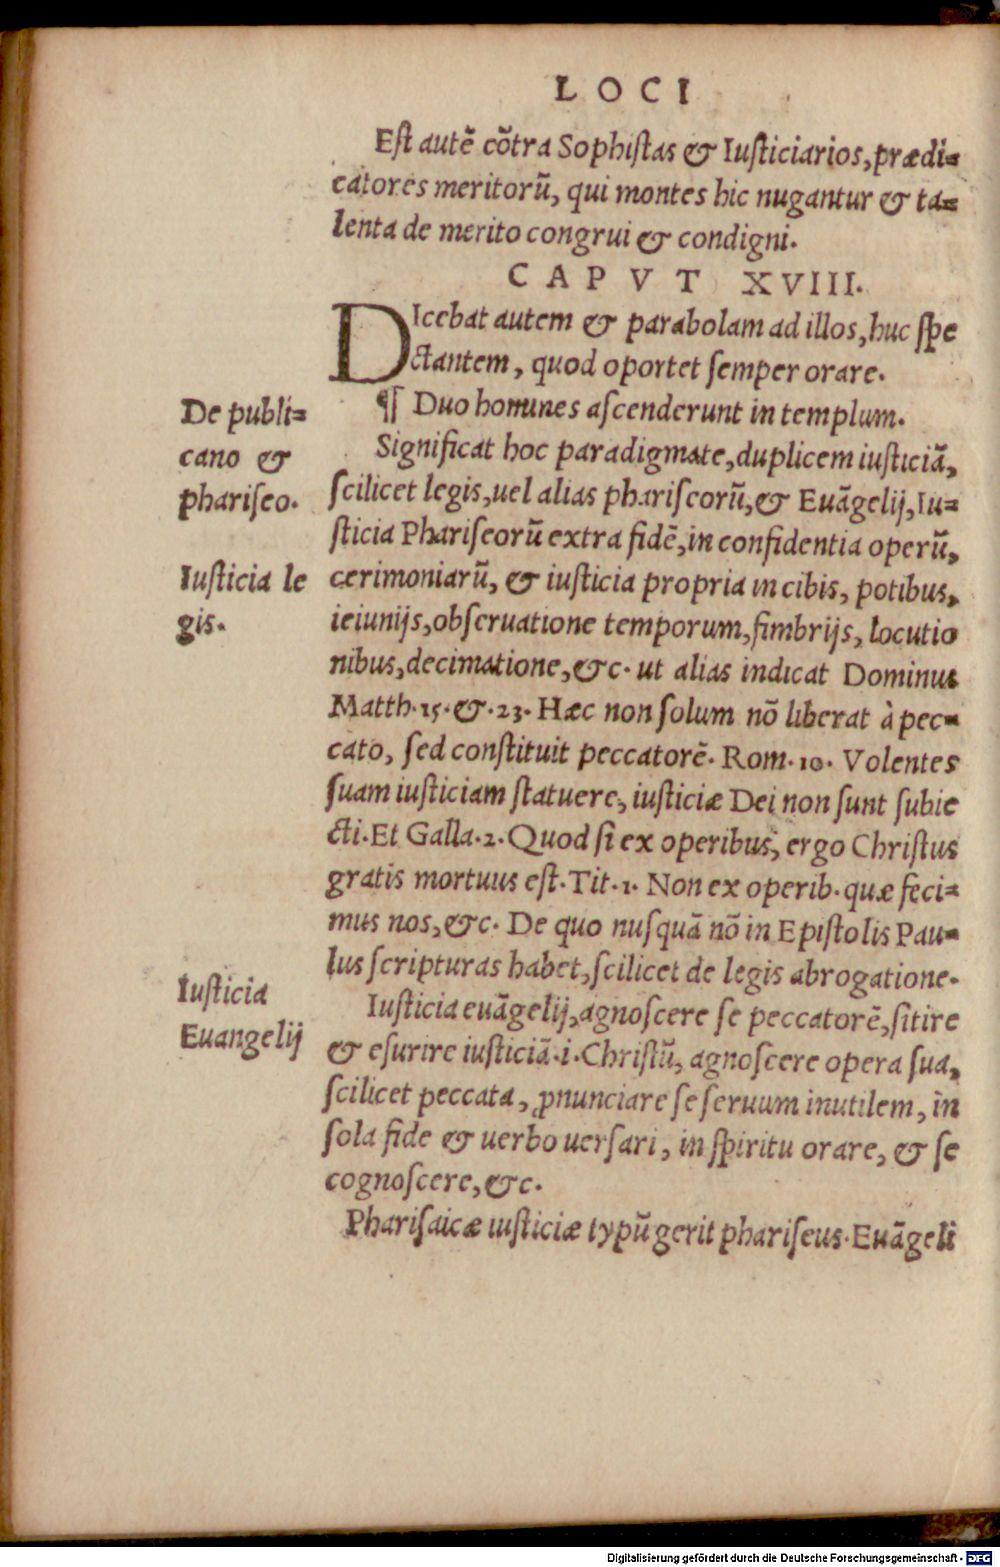 LOCI
Est autē cōtra Sophistas & Iusticiarios, prædi=
catores meritorū, qui montes hic nugantur & ta=
lenta de merito congrui & condigni.
CAPVT XVIII.
DIcebat autem & parabolam ad illos, huc spe
ctantem, quod oportet semper orare.
¶ Duo homines ascenderunt in templum.
De publi=
cano &
phariseo.
Significat hoc paradigmate, duplicem iusticiā,
scilicet legis, uel alias phariseorū, & Euāgelij, Iu=
sticia Phariseorū extra fidē, in confidentia operū,
Iusticia le
gis.
cerimoniarū, & iusticia propria in cibis, potibus,
ieiunijs, obseruatione temporum, fimbrijs, locutio
nibus, decimatione, &c. ut alias indicat Dominus
Matth. 15. &. 23. Hæc non solum nō liberat à pec=
cato, sed constituit peccatorē. Rom. 10. Volentes
suam iusticiam statuere, iusticiæ Dei non sunt subie
cti. Et Galla. 2. Quod si ex operibus, ergo Christus
gratis mortuus est. Tit. 1. Non ex operib. quæ feci=
mus nos, &c. De quo nusquā nō in Epistolis Pau=
lus scripturas habet, scilicet de legis abrogatione.
Iusticia
Euangelij
Iusticia euāgelij, agnoscere se peccatorē, sitire
& esurire iusticiā .i. Christū, agnoscere opera sua,
scilicet peccata, ꝓnunciare se seruum inutilem, in
sola fide & uerbo uersari, in spiritu orare, & se
cognoscere, &c.
Pharisaicæ iusticiæ typū gerit phariseus. Euāgeli
Digitalisierung gefördert durch die Deutsche Forschungsgemeinschaft - DFG